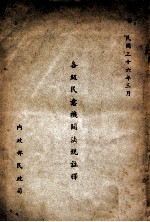 民國三十六年三月
各級民意機關法規註釋
內政部民政司